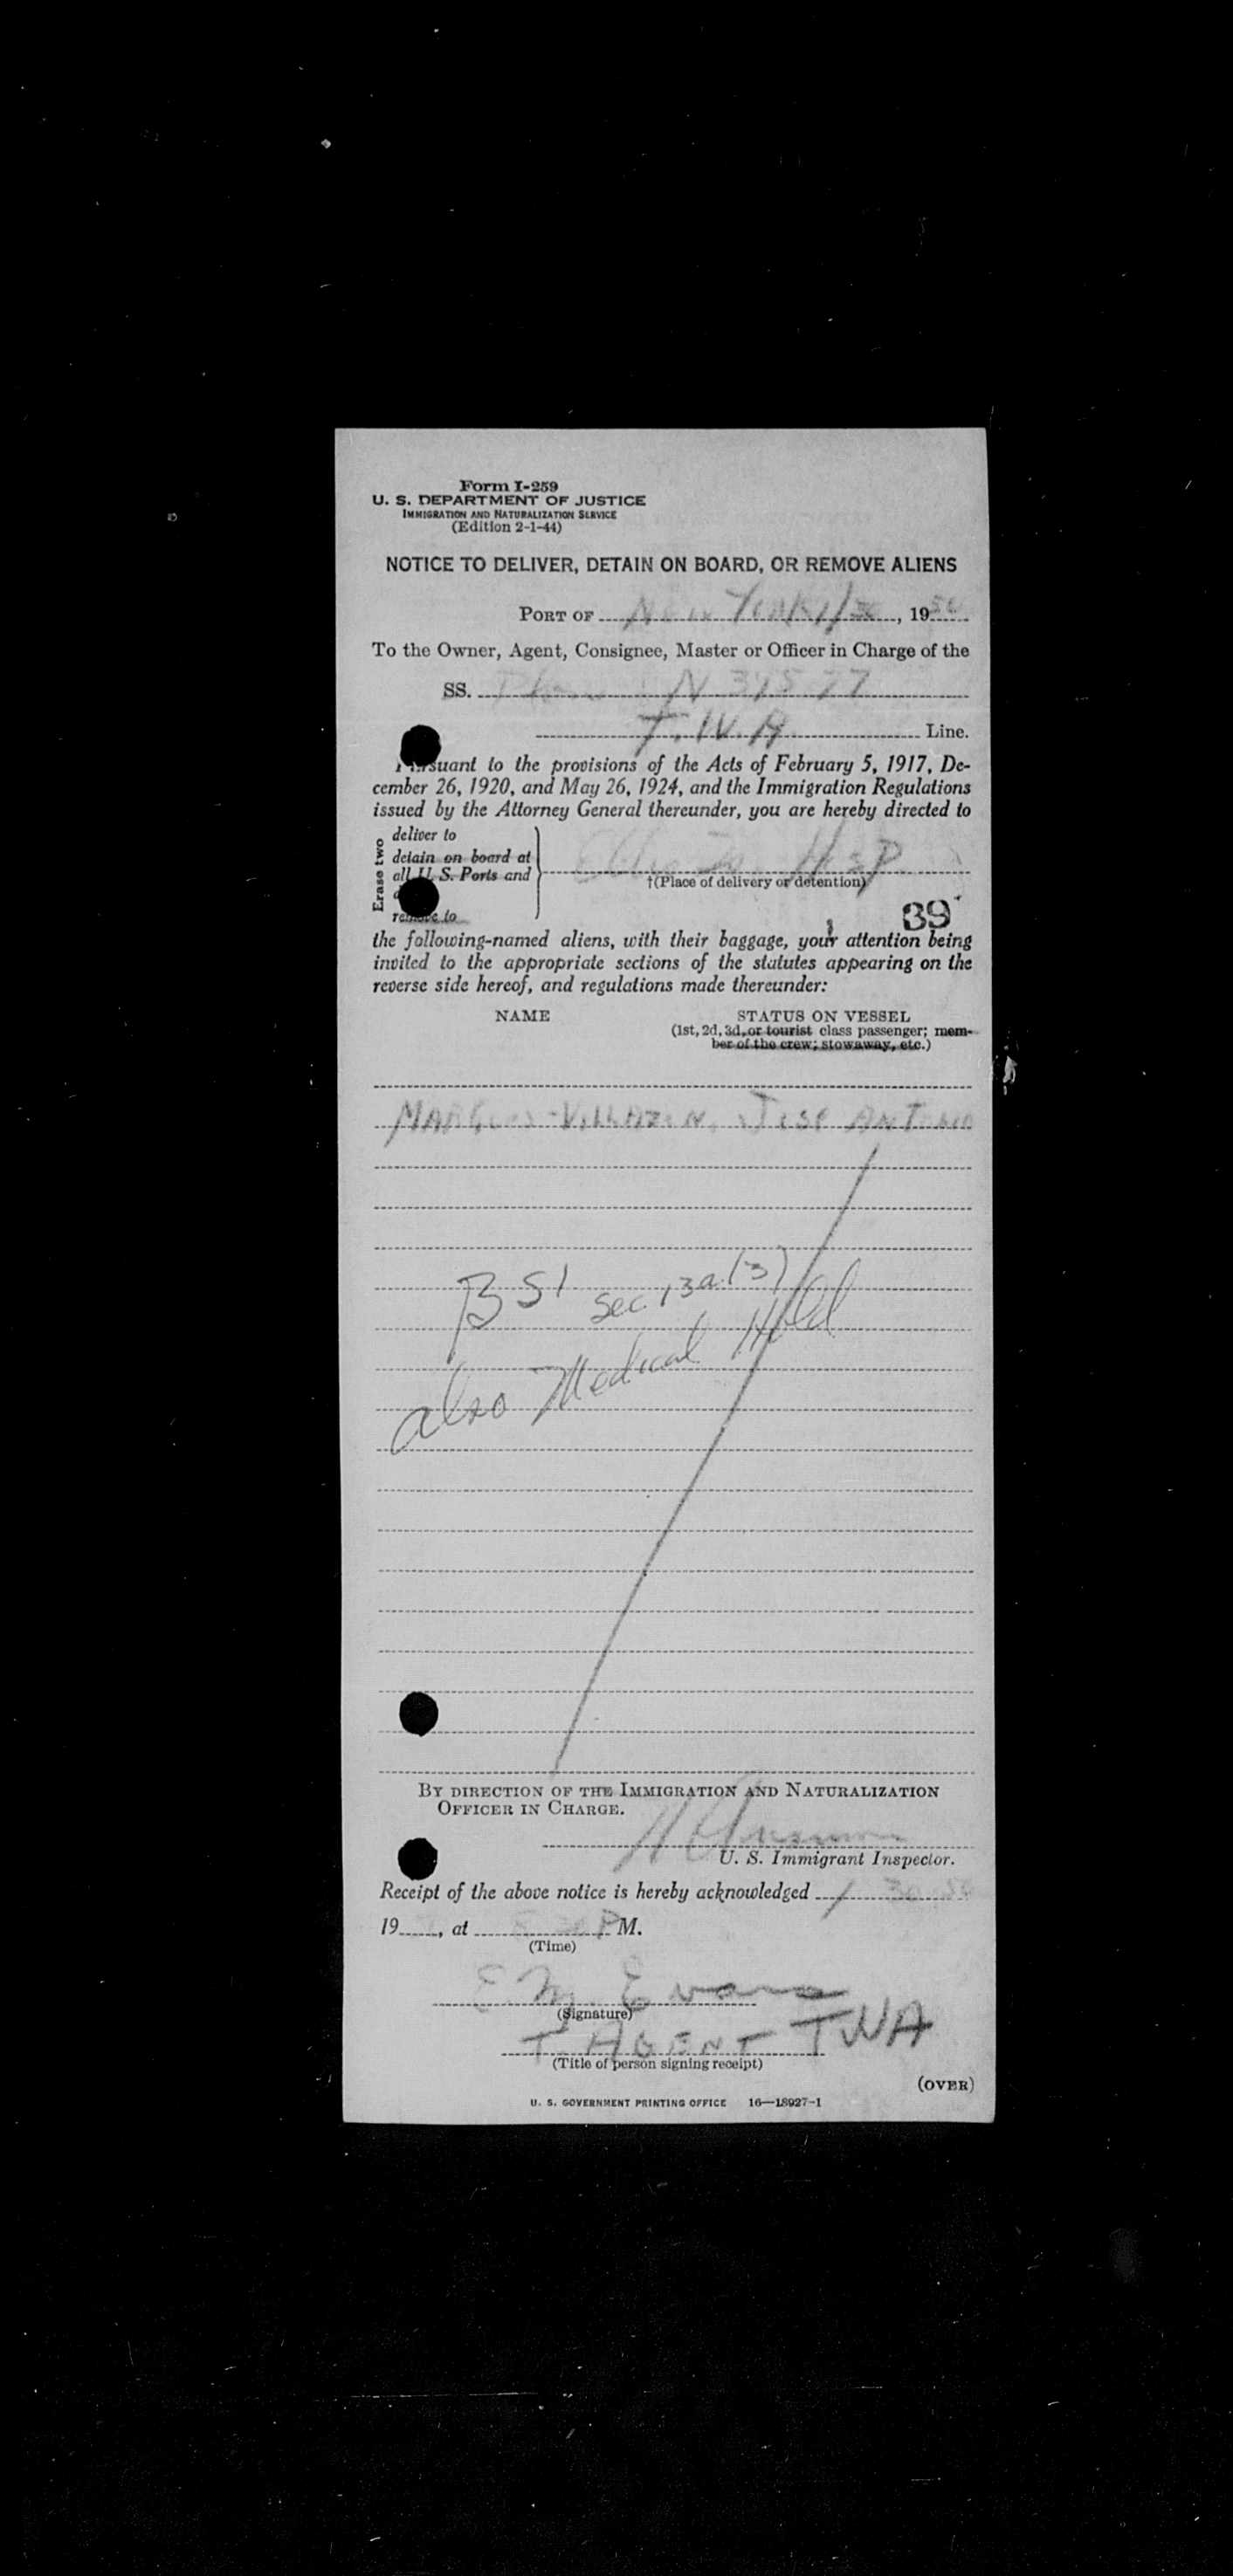 Form I-259
U. S. DEPARTMENT OF JUSTICE
IMMIGRATION AND NATURALIZATION SERVICE
(Edition 2-1-44)
NOTICE TO DELIVER, DETAIN ON BOARD, OR REMOVE ALIENS
PORT OF New York 1/30, 1950
To the Owner, Agent, Consignee, Master or Officer in Charge of the
SS. Plane N
T.W.A. Line.
Pursuant to the provisions of the Acts of February 5, 1917, De-
cember 26, 1920, and May 26, 1924, and the Immigration Regulations
issued by the Attorney General thereunder, you are hereby directed to
Erase two
deliver to
detain on board at
all U. S. Ports and
remove to
Hosp
†(Place of delivery or detention)
39
the following-named aliens, with their baggage, your attention being
invited to the appropriate sections of the statutes appearing on the
reverse side hereof, and regulations made thereunder:
NAME STATUS ON VESSEL
(1st, 2d, 3d, or tourist class passenger; mem-
ber of the crew; stowaway, etc.)
VILLAZON, JOSE ANTONIO
BSI Sec 13a(3)
also Medical Hold
BY DIRECTION OF THE IMMIGRATION AND NATURALIZATION
OFFICER IN CHARGE.
U. S. Immigrant Inspector.
Receipt of the above notice is hereby acknowledged 1 30 50
19, at P M.
(Time)
E. M. Evans
(Signature)
T. AGENT TWA
(Title of person signing receipt)
(OVER)
U. S. GOVERNMENT PRINTING OFFICE 16—18927-1